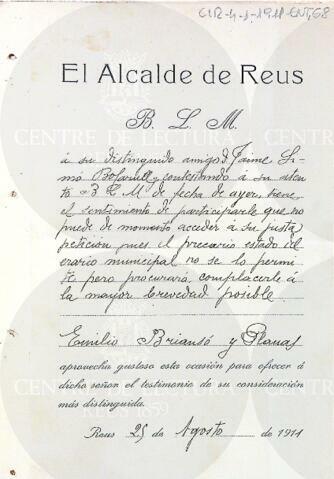 CLR-4-1-1911-ENT,68
El Alcalde de Reus
B. L. M.
á su distinguido amigo D. Jaime Si-
mó Bofarull y contestando á su aten-
to B L M de fecha de ayer, tiene
el sentimiento de participarle que no
puede de momento acceder á su justa
petición pues el precario estado del
erario municipal no se lo permi-
te pero procurará complacerle á
la mayor brevedad posible
Emilio Briansó y Planas
aprovecha gustoso esta ocasión para ofrecer á
dicho señor el testimonio de su consideración
más distinguida.
Reus 25 de Agosto de 1911
CENTRE DE LECTURA
REUS 1859